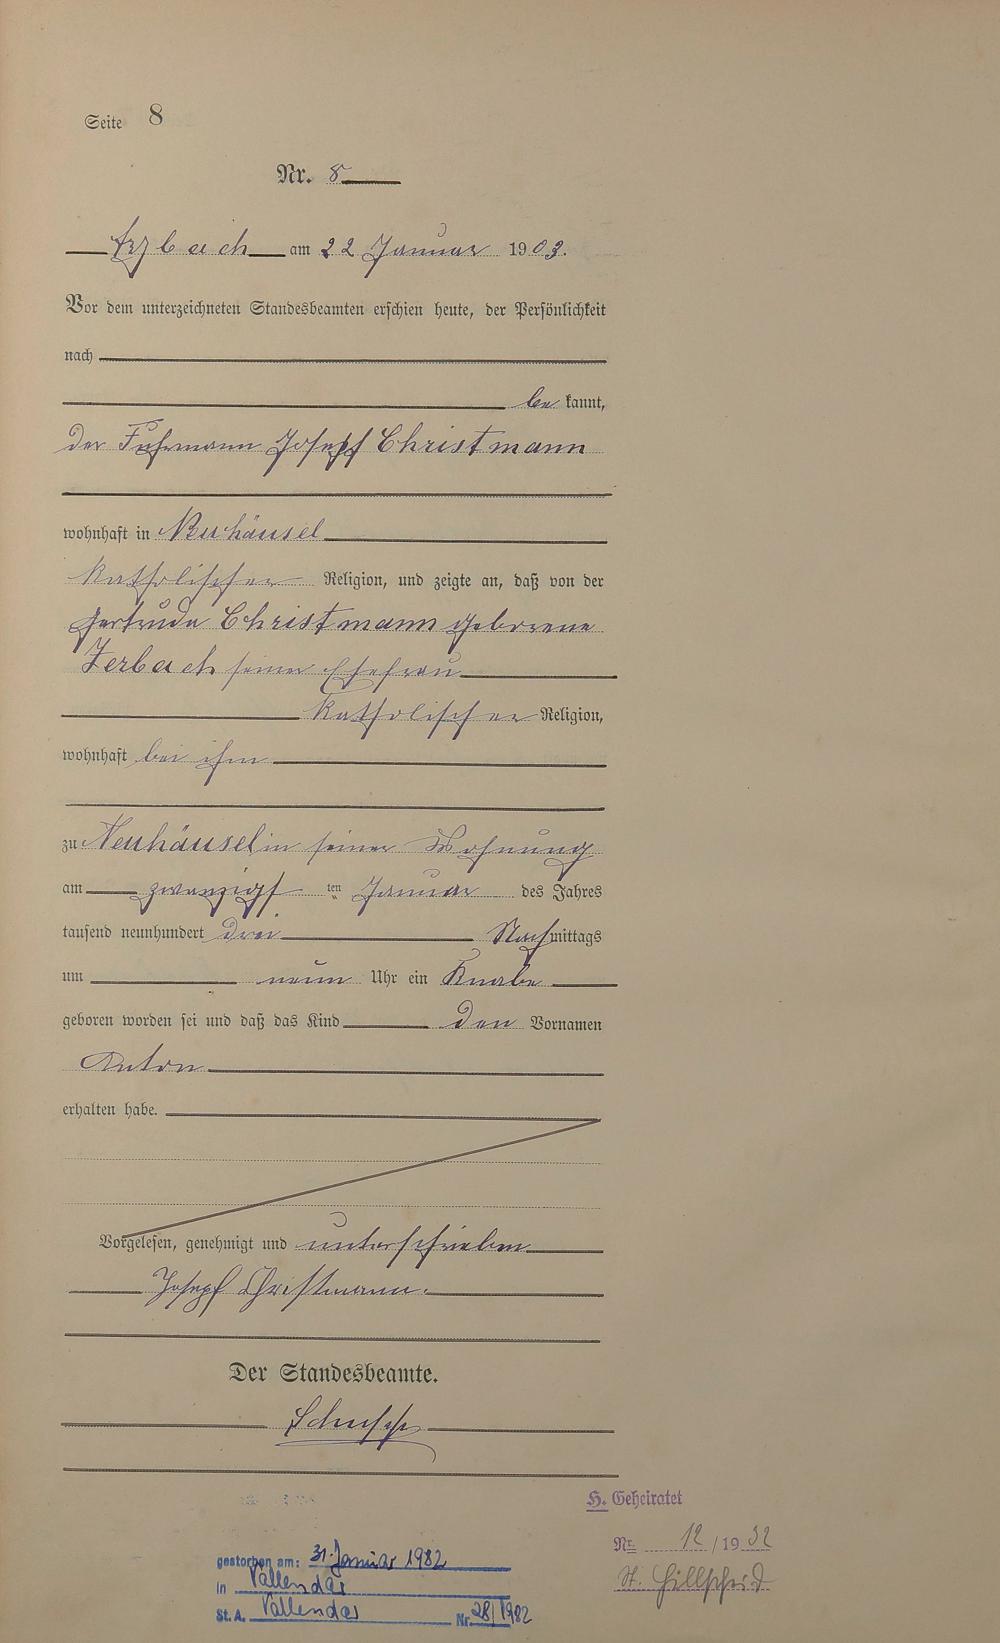 Seite 8
Nr. 8
Arzbach am 22 Januar 1903.
Vor dem unterzeichneten Standesbeamten erschien heute, der Persönlichkeit
nach
be kannt,
der Fuhrmann Joseph Christmann
wohnhaft in Neuhäusel
katholischer Religion, und zeigte an, daß von der
Gertrude Christmann geborene
Zerbach seiner Ehefrau
katholischer Religion,
wohnhaft bei ihm
zu Neuhäusel in seiner Wohnung
am zwanzigsten Januar des Jahres
tausend neunhundert drei Nachmittags
um neun Uhr ein Knabe
geboren worden sei und daß das Kind den Vornamen
Anton
erhalten habe.
Vorgelesen, genehmigt und unterschrieben
Joseph Christmann.
Der Standesbeamte.
H. Geheiratet
Nr. 12/1932
St. Hillscheid
gestorben am: 31. Januar 1982
in Vallendar
St. A. Vallendar Nr. 28/1982